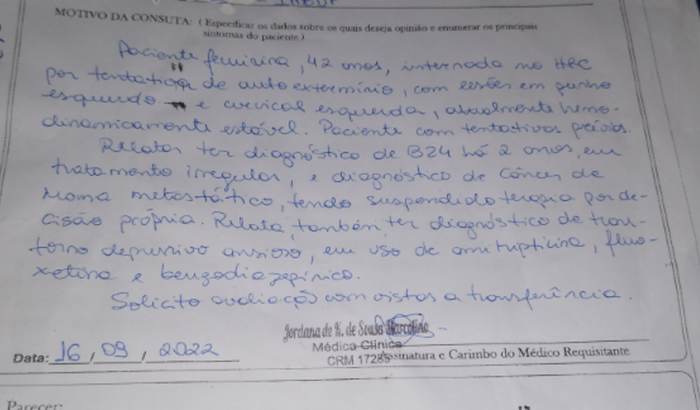 MOTIVO DA CONSUTA: ( Especificar os dados sobre os quais deseja opinião e enumerar os principais
sintomas do paciente )
Paciente feminina, 42 anos, internada no HRC
por tentativa de auto extermínio, com lesões em punho
esquerdo e cervical esquerda, atualmente hemo-
dinamicamente estável. Paciente com tentativas prévias.
Relator ter diagnóstico de B24 há 2 anos, em
tratamento irregular, e diagnóstico de Câncer de
Mama metastático, tendo suspendido terapia por de-
cisão própria. Relata, também, ter diagnóstico de trans-
torno depressivo ansioso, em uso de amitriptilina, fluo-
xetina e benzodiazepínico.
Solicito avaliação com vistas a transferência.
Jordana de N. de Sousa Marcolino
Médica Clínica
CRM 17285
Assinatura e Carimbo do Médico Requisitante
Data: 16 / 09 / 2022
Parecer: